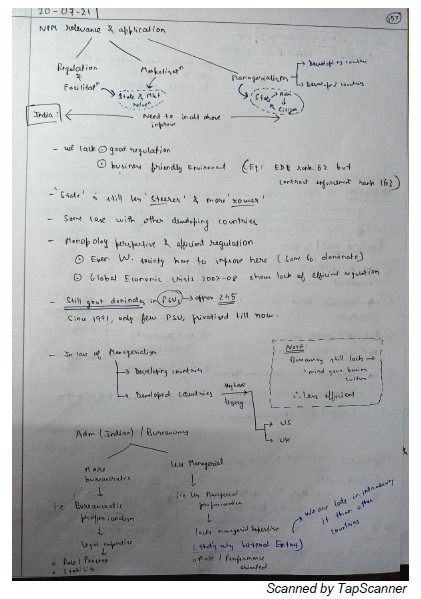 20-07-21
157
NPM relevance & application
Regulation
&
Facilitatⁿ
Marketizatⁿ
Managerialism
→ Developing countries
→ Developed countries
State & Mkt
relⁿ
State → Admn
→ Citizen
India :
Need to in all above
improve
- We lack ⊙ good regulation
⊙ business friendly Environment (Eg: EDB rank 62 but
contract enforcement rank 163)
- 'State' is still less 'steerer' & more 'rower'
- Same case with other developing countries
- Monopoly perspective & efficient regulation
⊙ Even W. society have to improve here (Some Co. dominate)
⊙ Global Economic crisis 2007-08 shows lack of efficient regulation
- Still govt dominates in PSUs → approx 245.
Since 1991, only few PSUs privatised till now.
- In case of Managerialism
→ Developing countries
→ Developed Countries
legacy
→ US
→ UK
Note:
Bureaucracy still lacks →
"mind your business
culture"
∴ less efficient
Adm (Indian) / Bureaucracy
More
bureaucratic
i.e Bureaucratic
professionalism
Legal expertise
⊙ Rule / Process
⊙ Stability
Less Managerial
i.e Less Managerial
professionalism
lacks managerial expertise
(that's why Lateral Entry)
⊙ Role / Performance
oriented
→ We are late in introducing
it than other
countries
Scanned by TapScanner